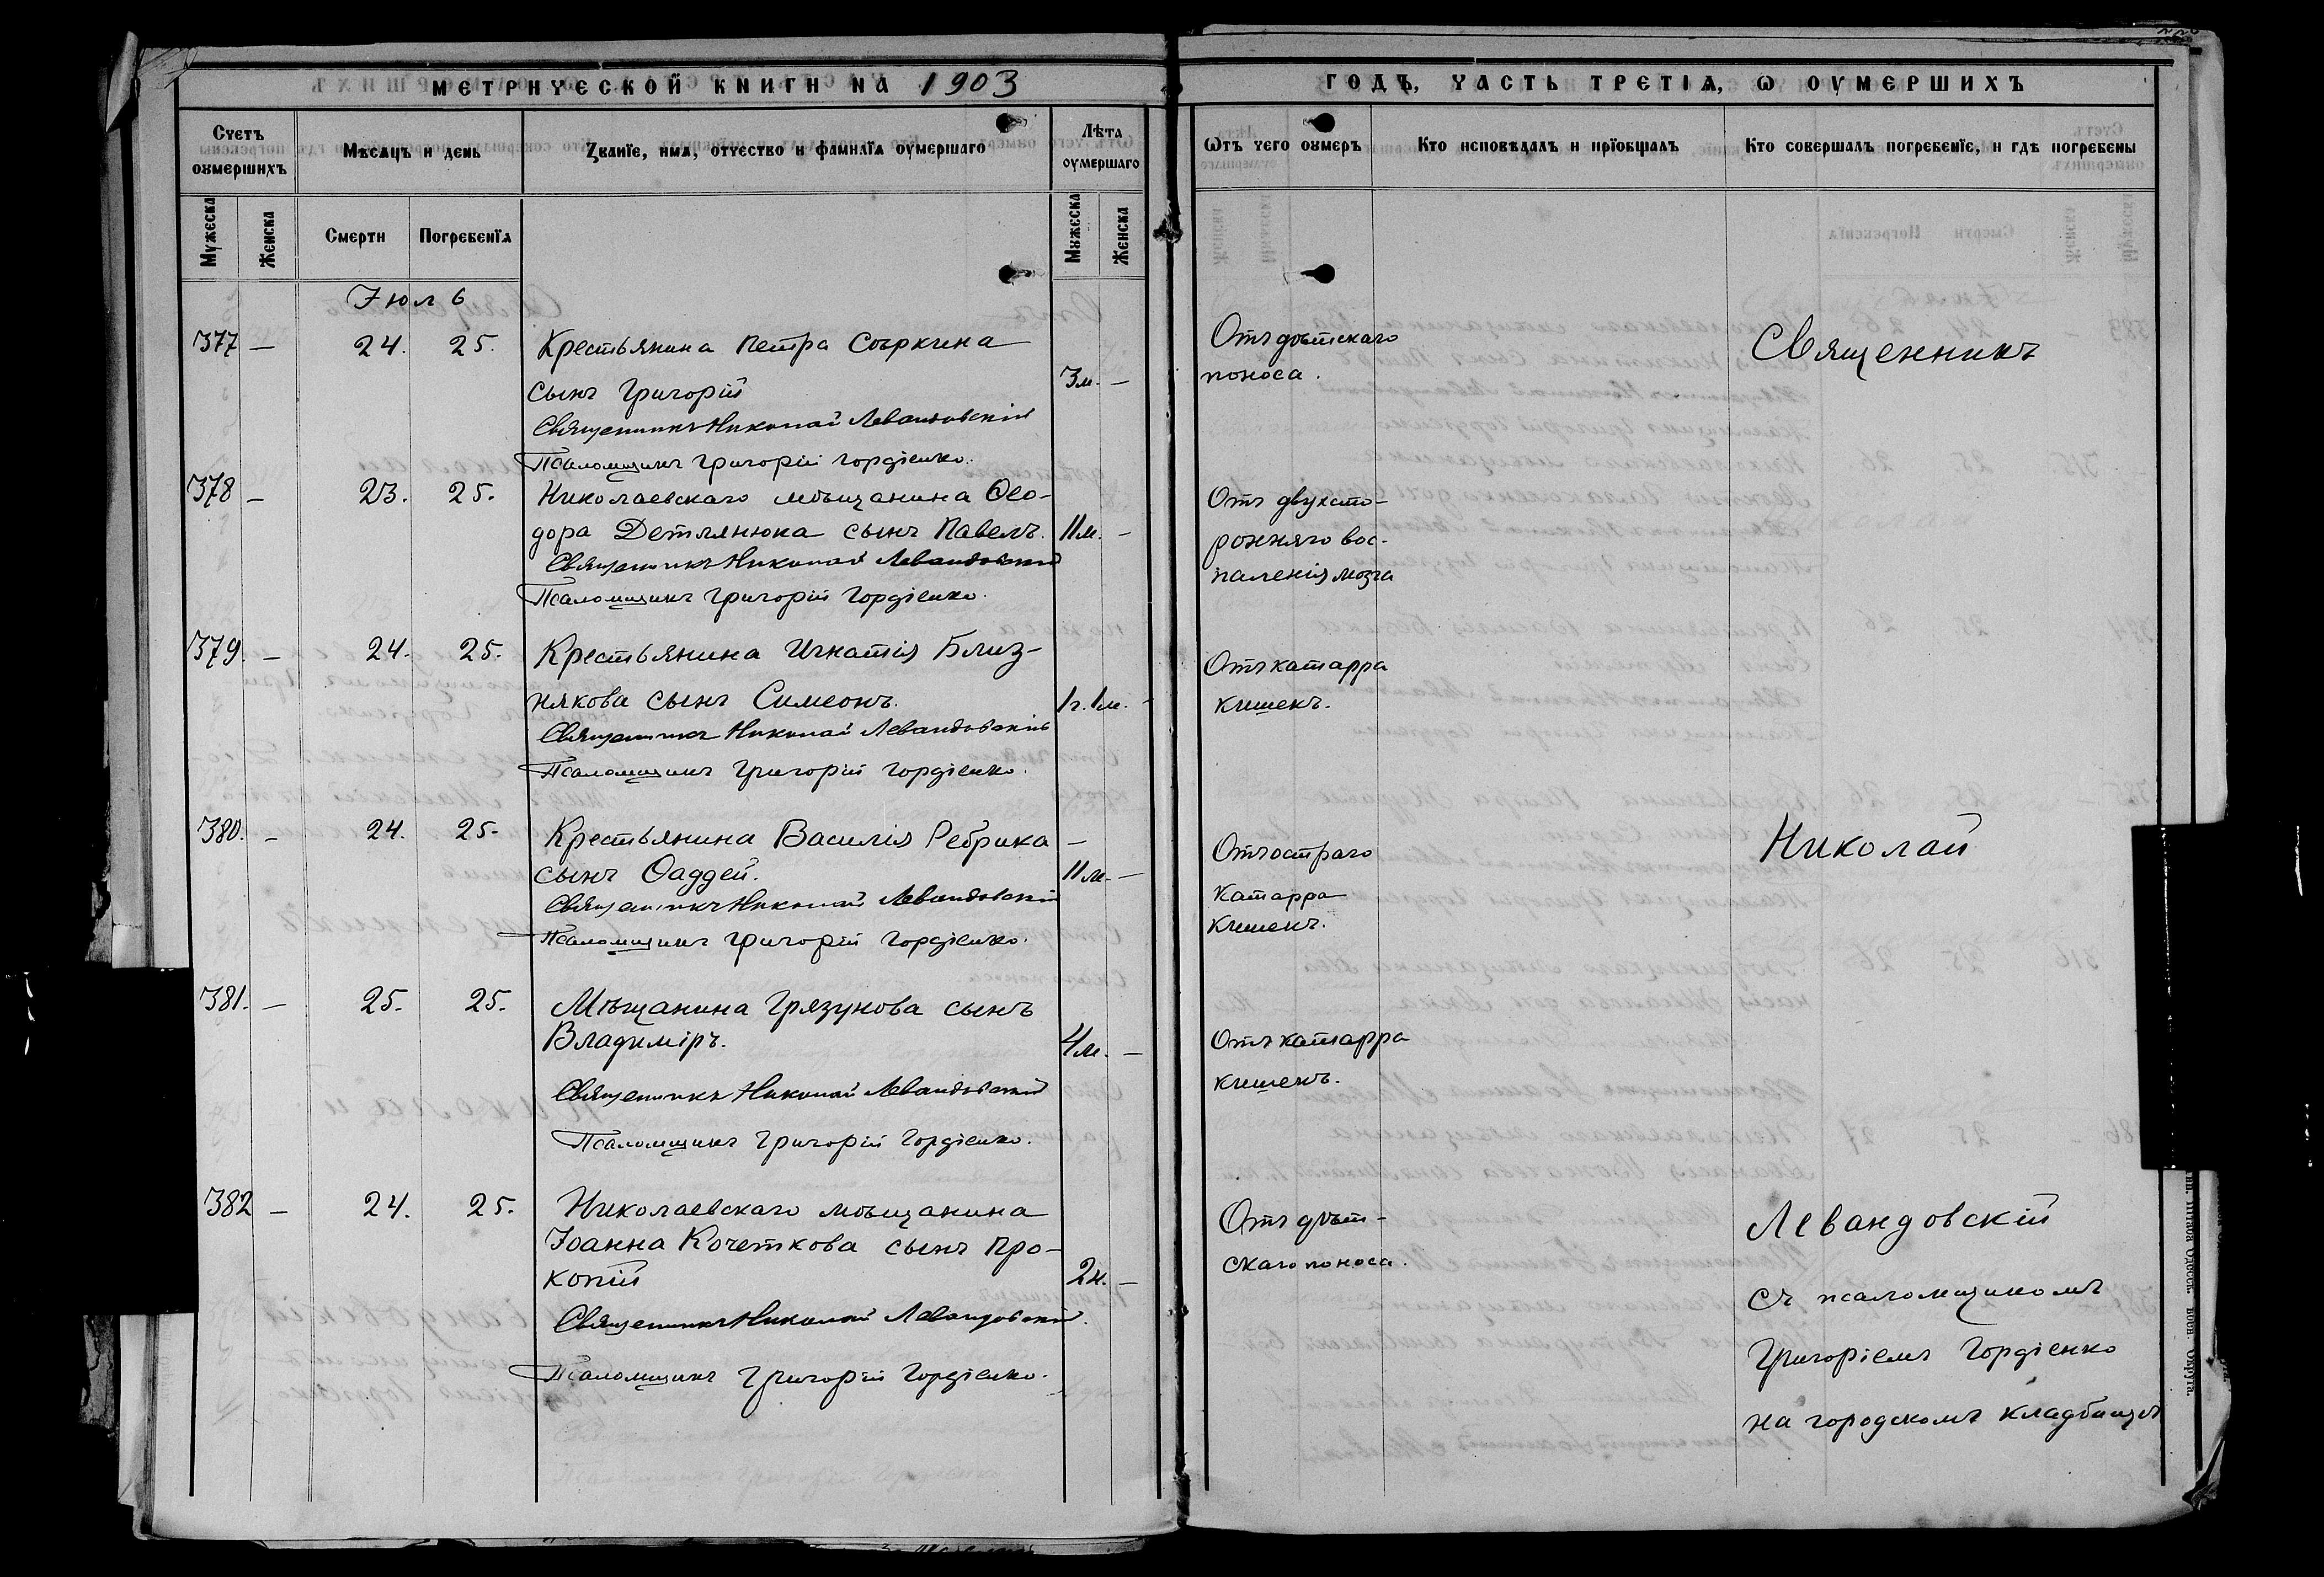 МЕТРИЧЕСКОЙ КНИГИ НА 1903
ГОДЪ, ЧАСТЬ ТРЕТІѦ, Ѡ ОУМЕРШИХЪ
Счетъ оумершихъ
Мѣсѧцъ и день
Званїе, имѧ, отчество и фамилїѧ оумершаго
Лѣта оумершаго
Ѿтъ чего оумеръ
Кто исповѣдалъ и прїобщалъ
Кто совершалъ погребенїе, и гдѣ погребены
Мужеска
Женска
Смерти
Погребенїѧ
Мужеска
Женска
Іюль
377 — 24. 25. Крестьянина Петра Сыркина
сынъ Григорій 3м. —
Священникъ Николай Левандовскій
Псаломщикъ Григорій Гордіенко.
Отъ дѣтскаго
поноса.
378 — 23. 25. Николаевскаго мѣщанина Ѳео-
дора Детлянюка сынъ Павелъ. 11м. —
Священникъ Николай Левандовскій
Псаломщикъ Григорій Гордіенко.
Отъ двухсто-
ронняго вос-
паленія мозга
379. — 24. 25. Крестьянина Игнатія Близ-
някова сынъ Симеонъ. 1г. 1м. -
Священникъ Николай Левандовскій
Псаломщикъ Григорій Гордіенко.
Отъ катарра
кишекъ.
380. — 24. 25. Крестьянина Василія Ребрика —
сынъ Ѳаддей. 11м. —
Священникъ Николай Левандовскій
Псаломщикъ Григорій Гордіенко.
Отъ остраго
катарра
кишекъ.
381. — 25. 25. Мѣщанина Грязунова сынъ
Владиміръ. 4м. —
Священникъ Николай Левандовскій
Псаломщикъ Григорій Гордіенко.
Отъ катарра
кишекъ.
382 — 24. 25. Николаевскаго мѣщанина
Іоанна Кочеткова сынъ Про-
копій 2н. —
Священникъ Николай Левандовскій.
Псаломщикъ Григорій Гордіенко.
Отъ дѣт-
скаго поноса.
Священникъ
Николай
Левандовскій
съ псаломщикомъ
Григоріемъ Гордіенко
на городскомъ кладбищѣ